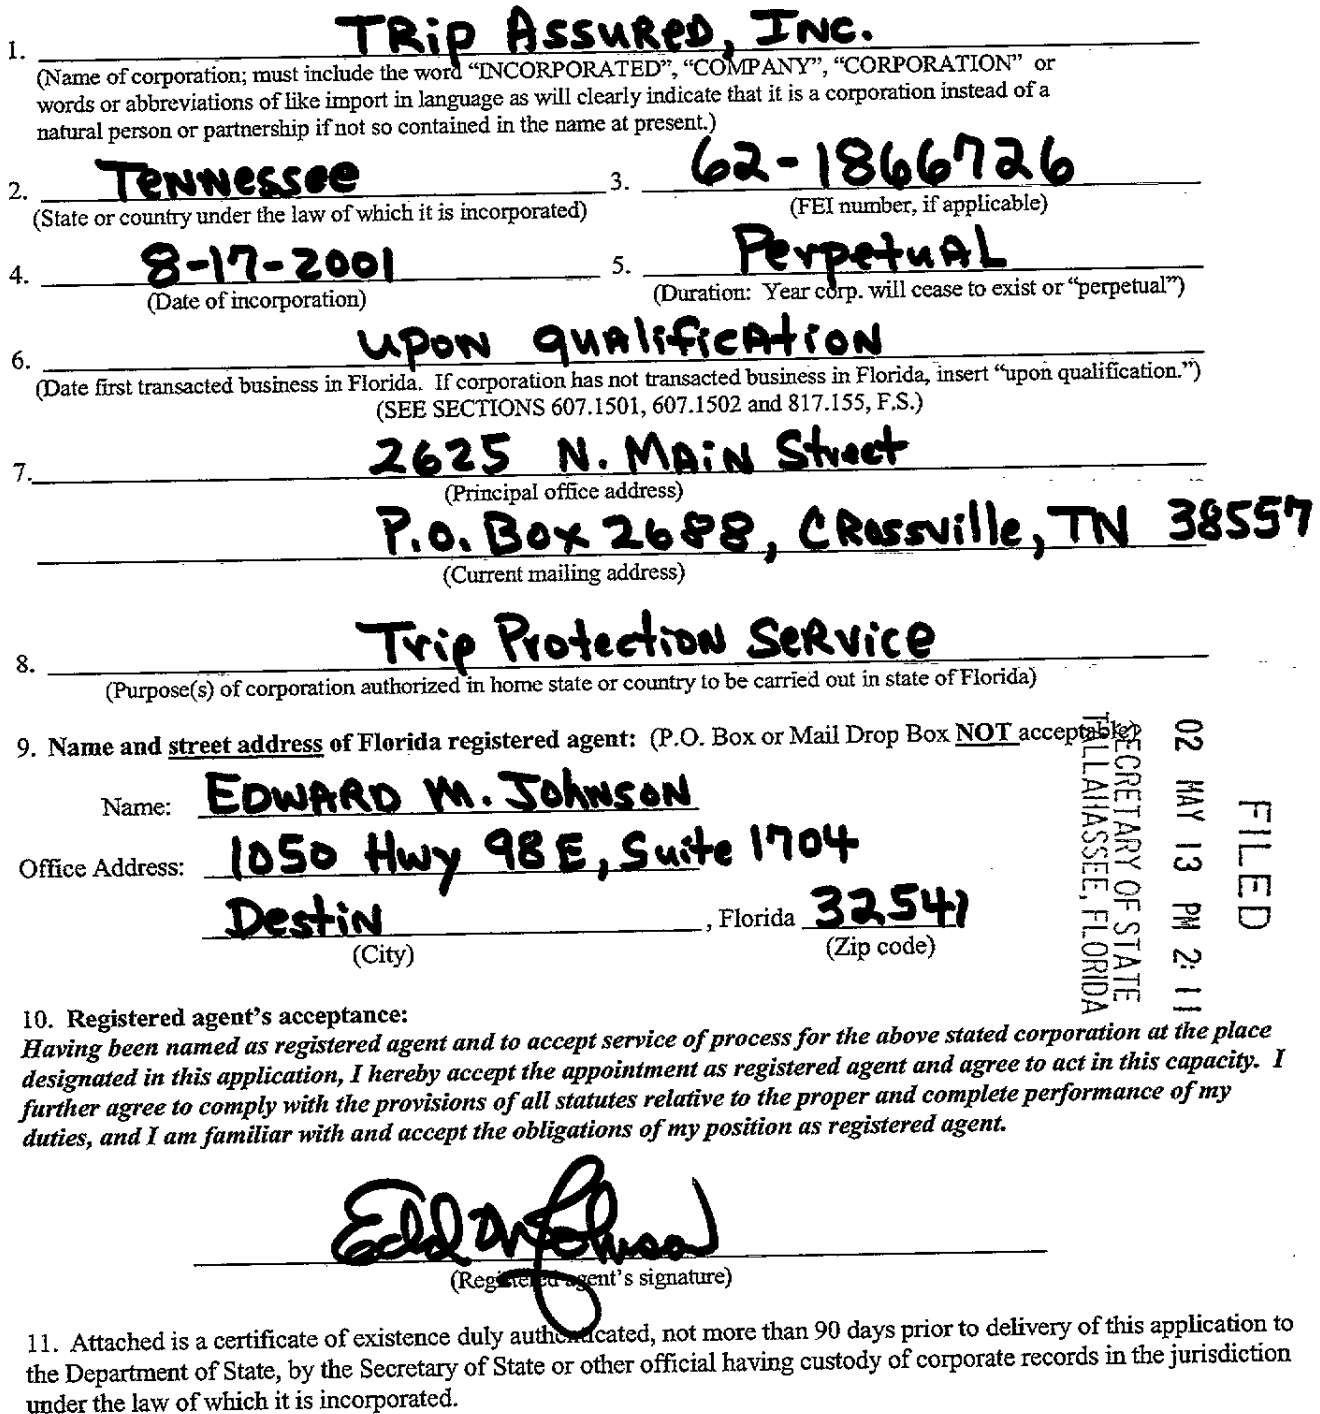 1. TRip Assured, Inc.
(Name of corporation; must include the word “INCORPORATED”, “COMPANY”, “CORPORATION” or
words or abbreviations of like import in language as will clearly indicate that it is a corporation instead of a
natural person or partnership if not so contained in the name at present.)
2. Tennessee 3. 62-1866726
(State or country under the law of which it is incorporated) (FEI number, if applicable)
4. 8-17-2001 5. Perpetual
(Date of incorporation) (Duration: Year corp. will cease to exist or “perpetual”)
6. upon qualification
(Date first transacted business in Florida. If corporation has not transacted business in Florida, insert “upon qualification.”)
(SEE SECTIONS 607.1501, 607.1502 and 817.155, F.S.)
7. 2625 N. Main Street
(Principal office address)
P.O. Box 2688, CRossville, TN 38557
(Current mailing address)
8. Trip Protection Service
(Purpose(s) of corporation authorized in home state or country to be carried out in state of Florida)
9. Name and street address of Florida registered agent: (P.O. Box or Mail Drop Box NOT acceptable)
Name: EDWARD M. Johnson
Office Address: 1050 Hwy 98E, Suite 1704
Destin, Florida 32541
(City) (Zip code)
FILED
02 MAY 13 PM 2:11
SECRETARY OF STATE
TALLAHASSEE, FLORIDA
10. Registered agent’s acceptance:
Having been named as registered agent and to accept service of process for the above stated corporation at the place
designated in this application, I hereby accept the appointment as registered agent and agree to act in this capacity. I
further agree to comply with the provisions of all statutes relative to the proper and complete performance of my
duties, and I am familiar with and accept the obligations of my position as registered agent.
Edd M Johnson
(Registered agent’s signature)
11. Attached is a certificate of existence duly authenticated, not more than 90 days prior to delivery of this application to
the Department of State, by the Secretary of State or other official having custody of corporate records in the jurisdiction
under the law of which it is incorporated.